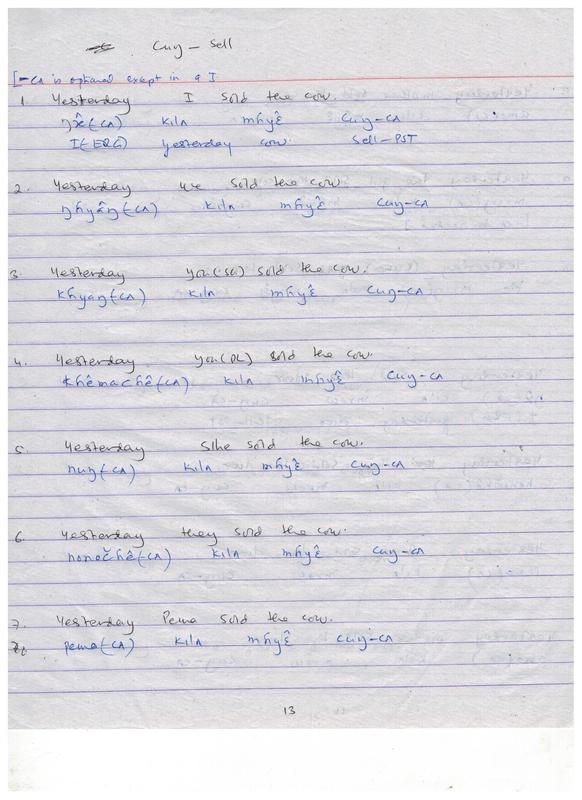 Cuŋ – Sell
[-cʌ is optional except in q I
1. Yesterday I sold the cow.
ŋx̂(-cʌ) kilʌ mɦyɛ̂ cuŋ-cʌ
I(-ERG) yesterday cow. sell-PST
2. Yesterday we sold the cow
ŋɦyâŋ(-cʌ) kilʌ mɦyɛ̂ cuŋ-cʌ
3. Yesterday you(SG) sold the cow.
khyaŋ(-cʌ) kilʌ mɦyɛ̂ cuŋ-cʌ
4. Yesterday you(PL) sold the cow.
khêmachê(-cʌ) kilʌ mɦyɛ̂ cuŋ-cʌ
5. Yesterday S/he sold the cow.
huŋ(-cʌ) kilʌ mɦyɛ̂ cuŋ-cʌ
6. Yesterday they sold the cow.
nonočhê(-cʌ) kilʌ mɦyɛ̂ cuŋ-cʌ
7. Yesterday Pema sold the cow.
pema(-cʌ) kilʌ mɦyɛ̂ cuŋ-cʌ
13